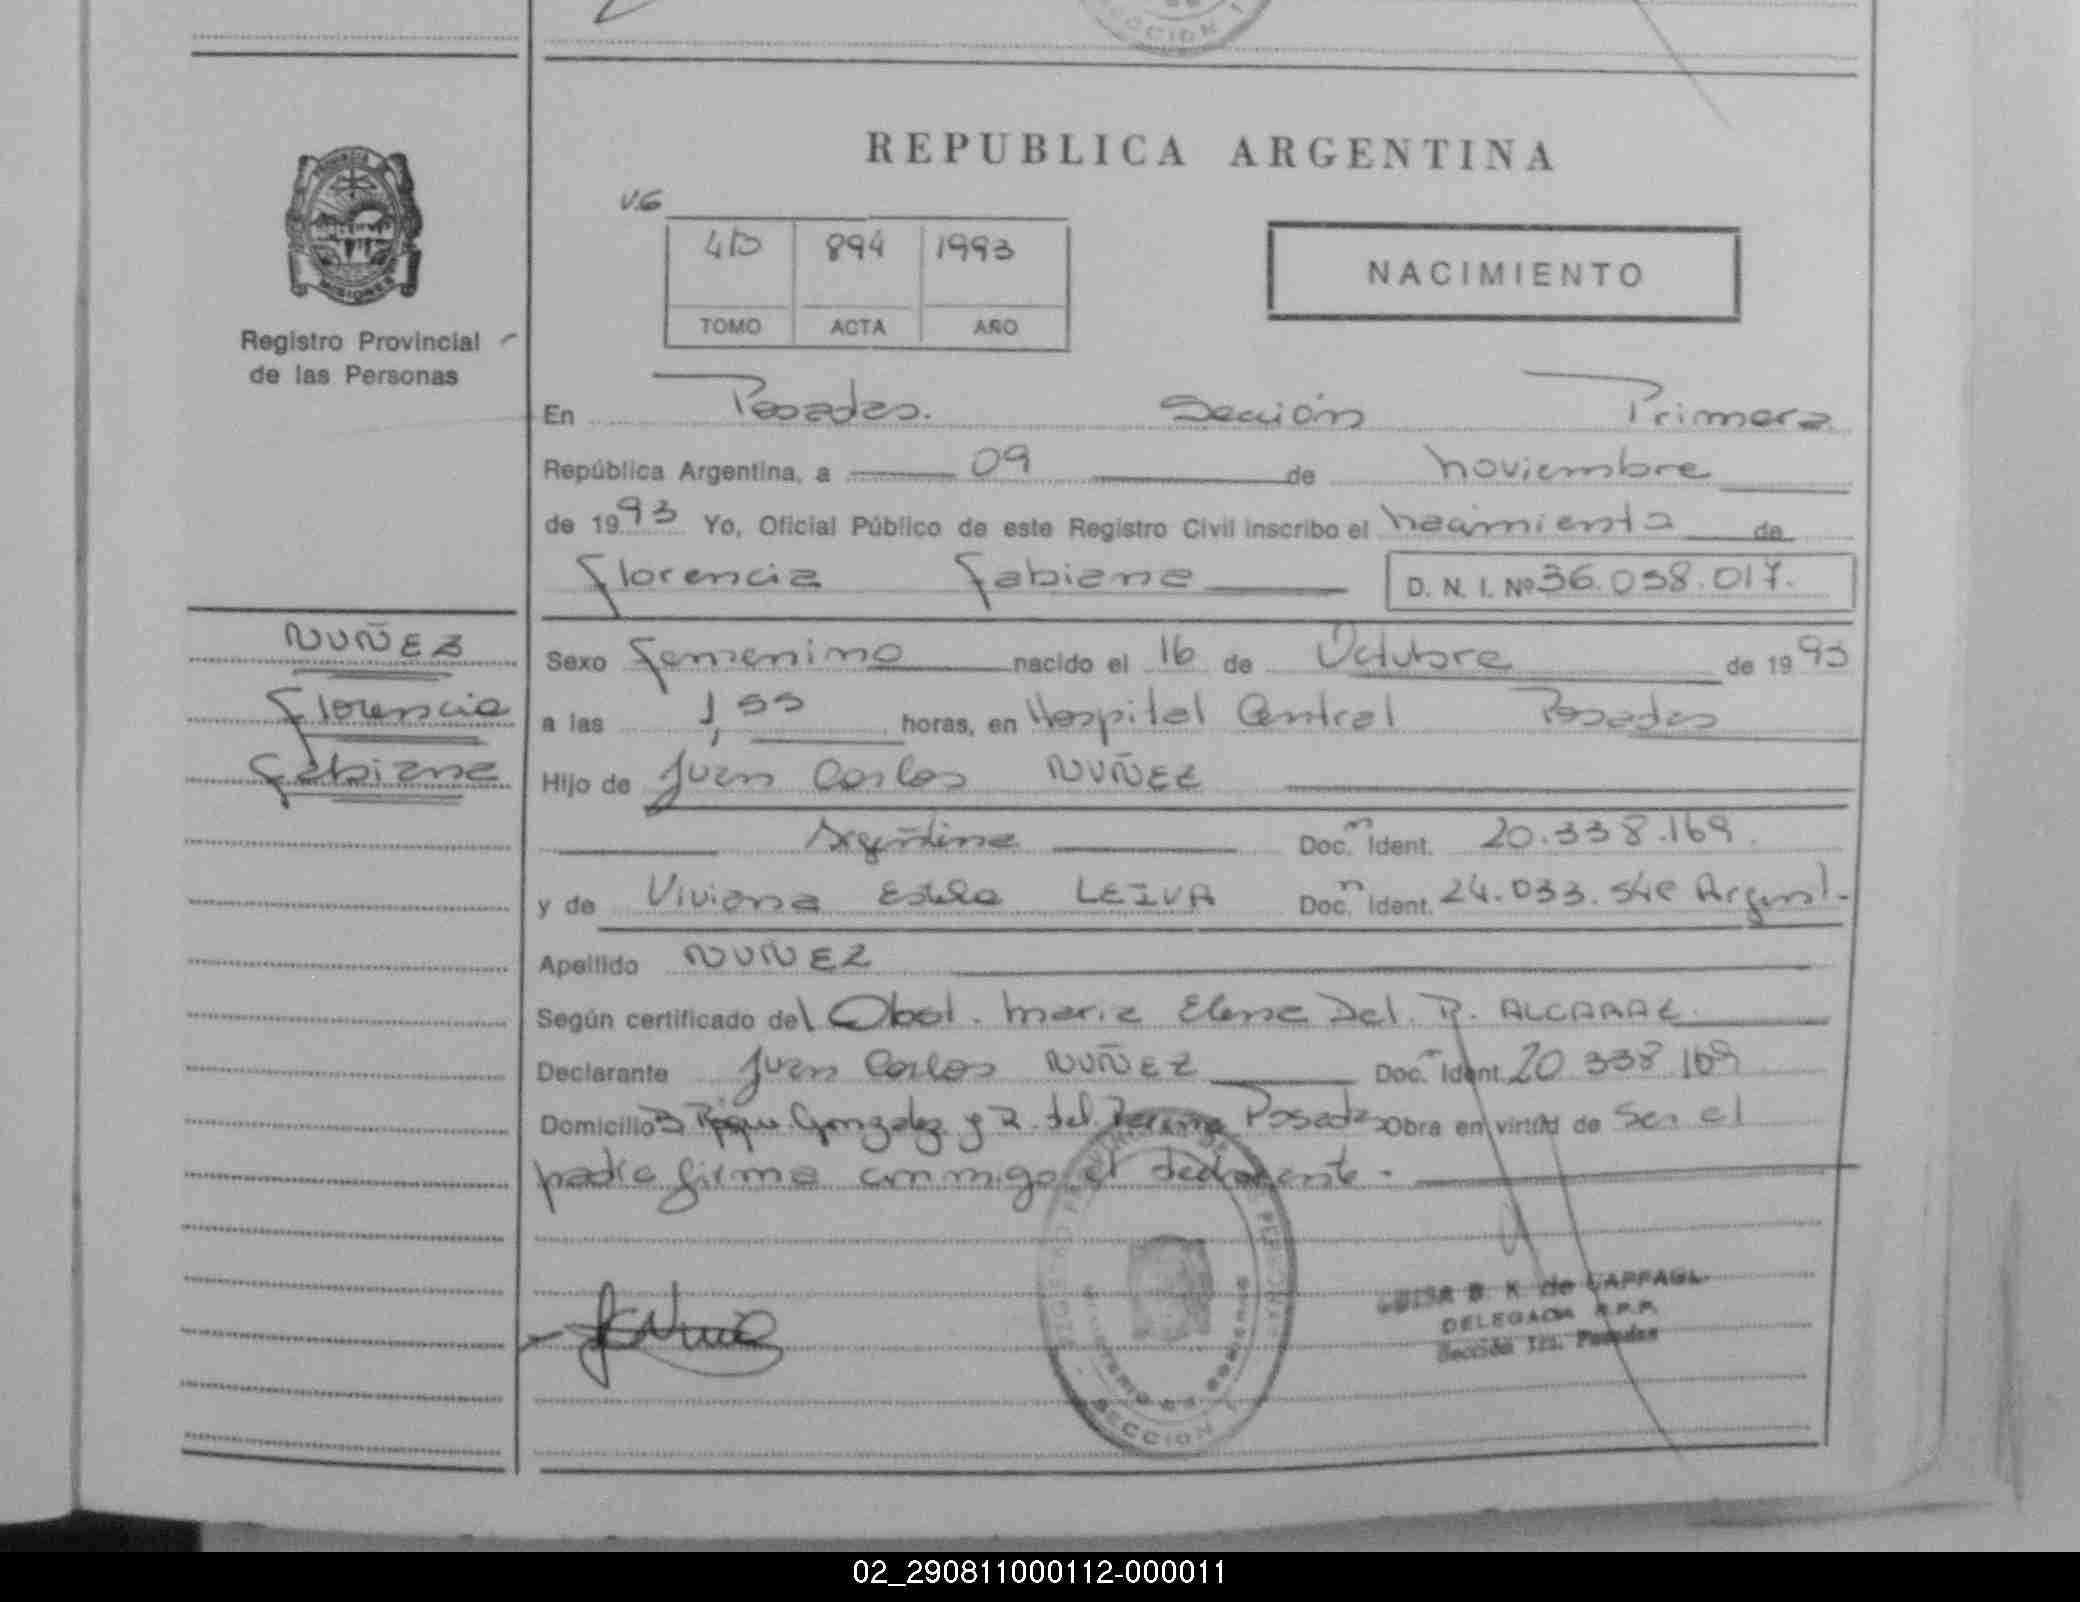 SECCION 1
REPUBLICA ARGENTINA
MISIONES
Registro Provincial
de las Personas
V.6
894 1993
TOMO ACTA AÑO
NACIMIENTO
En Posadas. Sección Primera
República Argentina, a 09 de noviembre
de 1993 Yo, Oficial Público de este Registro Civil inscribo el nacimiento de
Florencia Fabiana D. N. I. Nº 36.058.017.
NUÑEZ
Florencia
Fabiana
Sexo Femenino nacido el 16 de Octubre de 1993
a las horas, en Hospital Central Posadas
Hijo de Juan Carlos NUÑEZ
Argentina Doc.n Ident. 20.338.169.
y de Viviana Estela LEIVA Doc.n Ident. 24.033. Argent.-
Apellido NUÑEZ
Según certificado del Obst. Maria Elena Del. R. ALCARAZ.
Declarante Juan Carlos NUÑEZ Doc. Ident. 20 338 169
Domicilio Roque Gonzalez y R. del Posadas Obra en virtud de Ser el
padre firma conmigo el declarante.-
LUISA B. K. de
DELEGADA R.P.P.
Sección 1ra. Posadas
SECCION
02_290811000112-000011